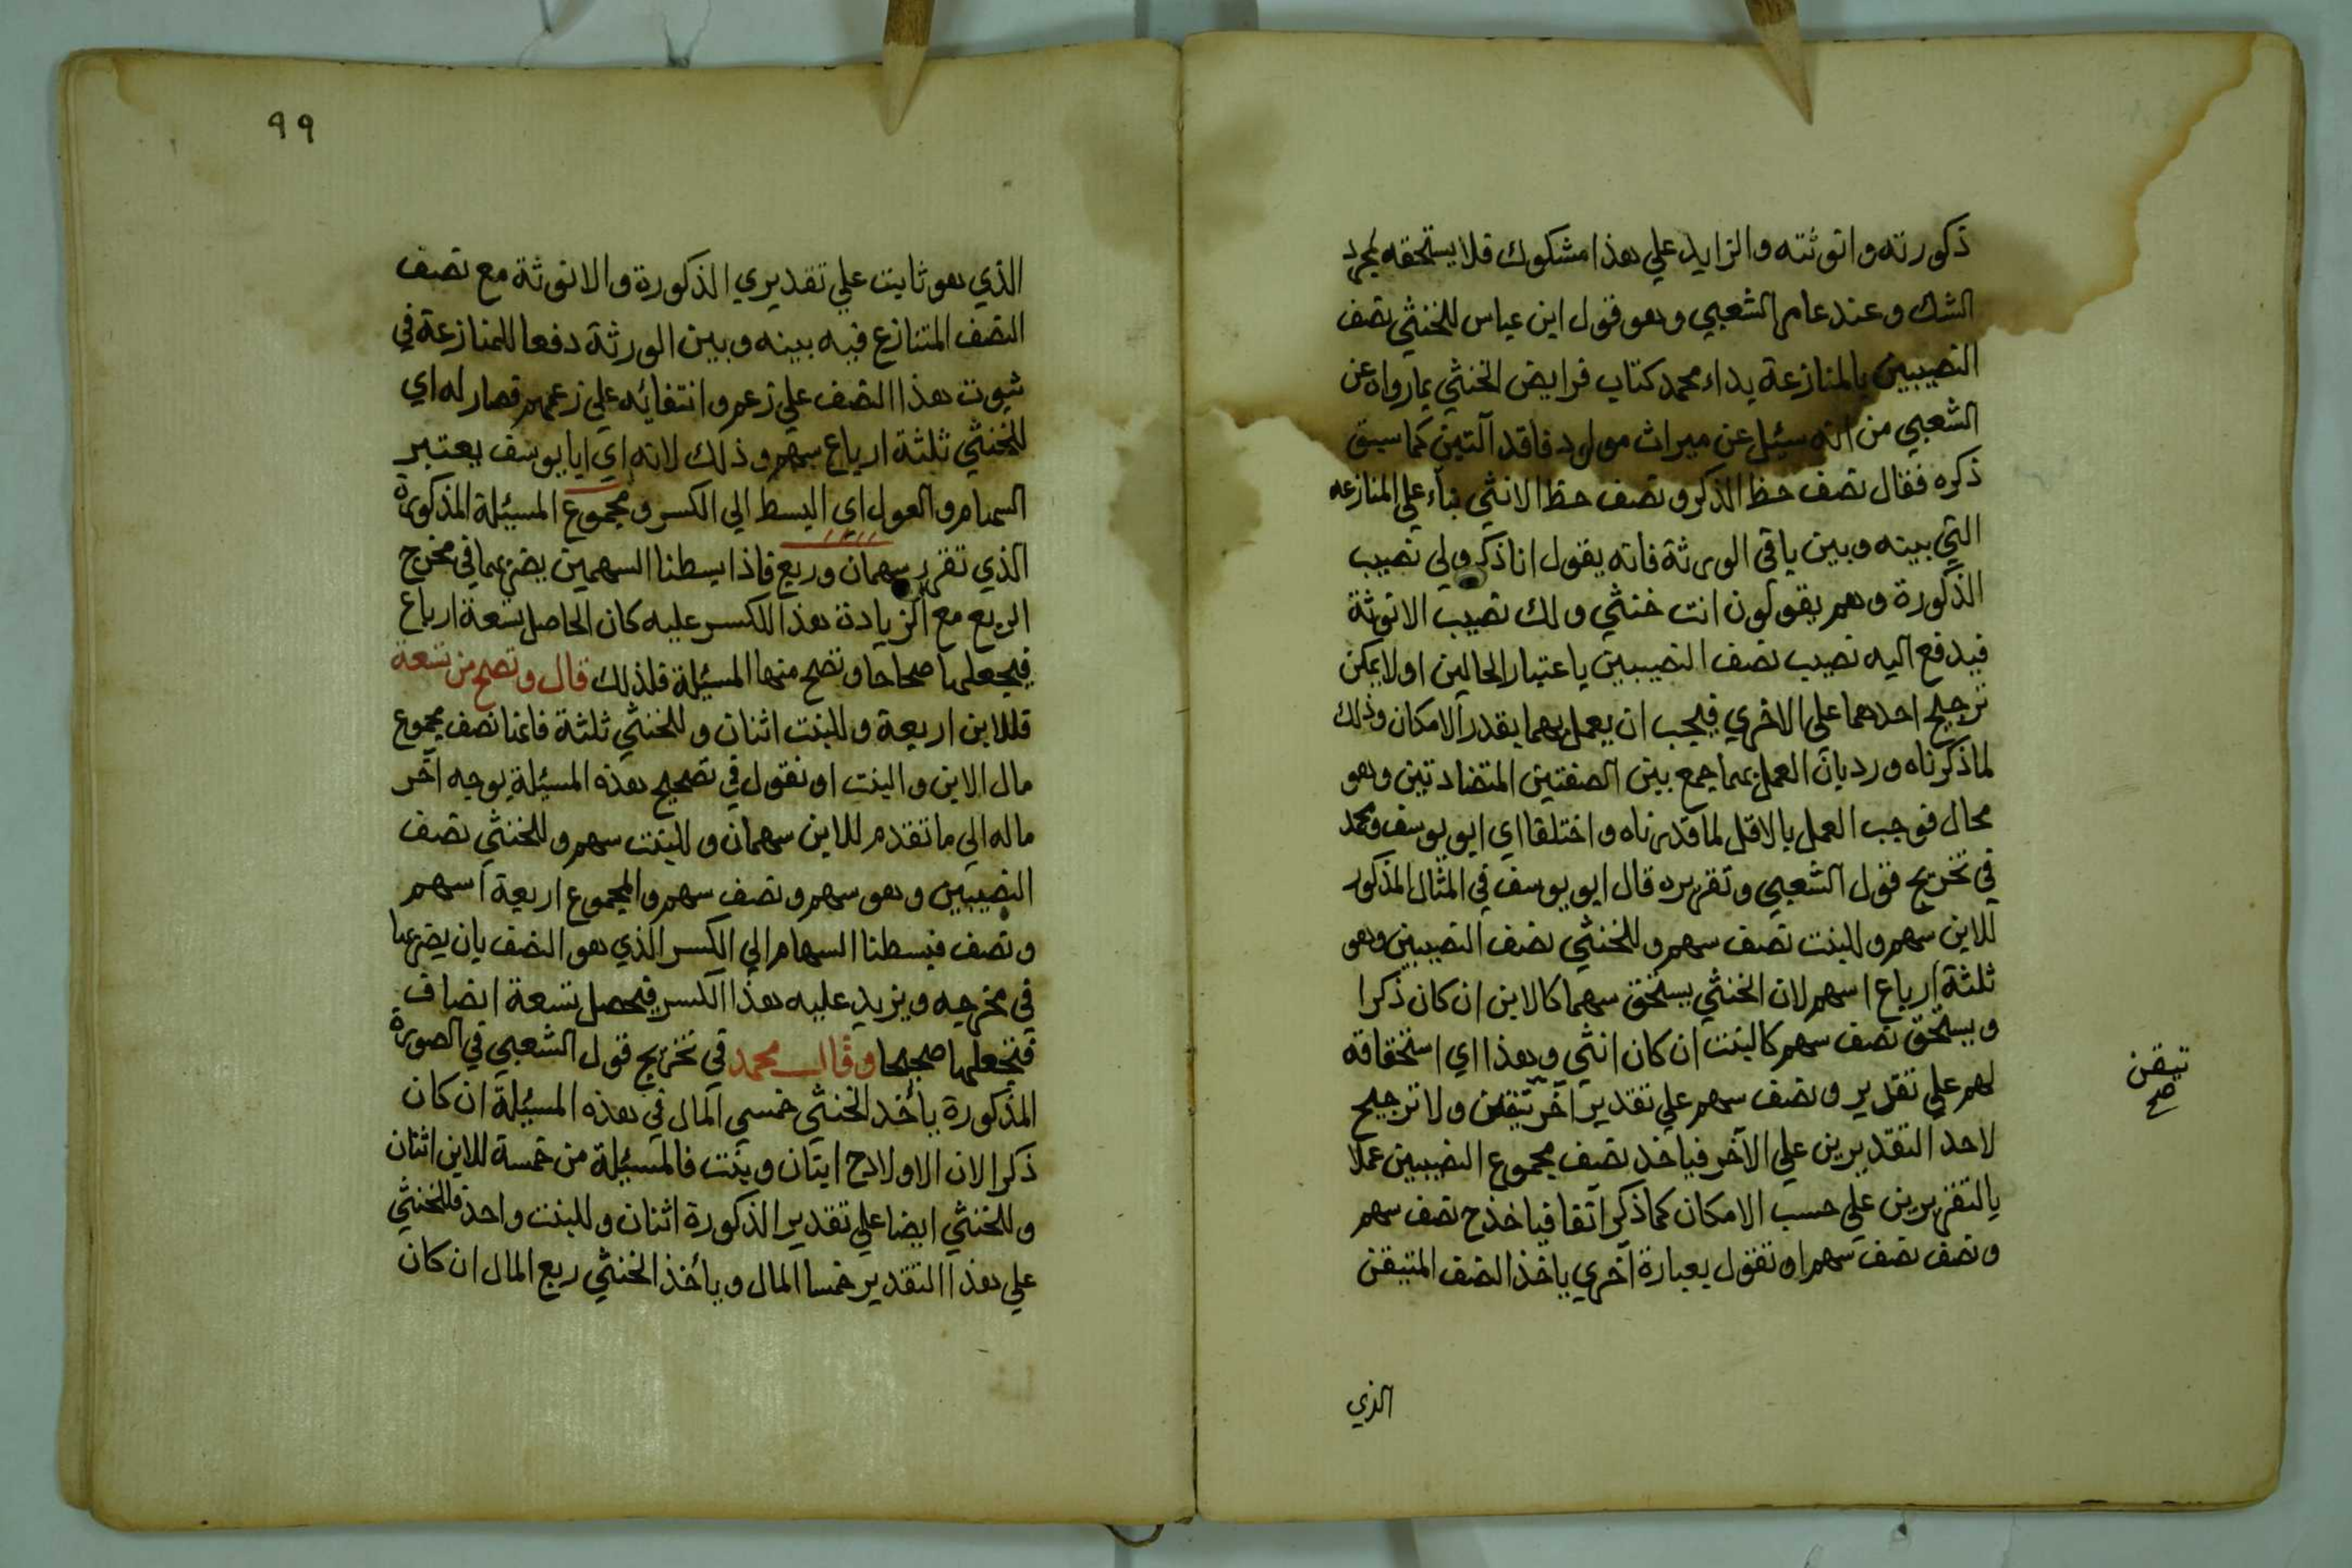 ذكورته وانوثته والزايد علي هذا مشكوك فلا يستحقه لمجرد
الشك وعند عامر الشعبي وهو قول ابن عباس للخنثي نصف
النصيبين بالمنازعة بداء محمد كتاب فرايض الخنثي بما رواه عن
الشعبي من انه سئل عن ميراث مولود فاقد آلتين كما سبق
ذكره فقال نصف حظ الذكر ونصف حظ الانثي بناء علي المنازعه
التي بينه وبين باقي الورثة فانه يقول انا ذكر ولي نصيب
الذكورة وهم يقولون انت خنثي ولك نصيب الانوثة
فيدفع اليه نصيب نصف النصيبين باعتبار الحالين اولا يمكن
ترجيح احدهما علي الاخري فيجب ان يعمل بهما بقدر الامكان وذلك
لما ذكرناه ورد بان العمل بهما جمع بين الصفتين المتضادتين وهو
محال فوجب العمل بالاقل لما قدرناه واختلفا اي ابو يوسف ومحمد
في تخريج قول الشعبي وتقريره قال ابو يوسف في المثال المذكور
للابن سهم وللبنت نصف سهم وللخنثي نصف النصيبين وهو
ثلثة ارباع اسهم لان الخنثي يستحق سهما كالابن ان كان ذكرا
ويستحق نصف سهم كالبنت ان كان انثي وهذا اي استحقاقه
لهم علي تقدير ونصف سهم علي تقدير آخر تيقن ولا ترجيح
تيقن صح
لاحد التقديرين علي الآخر فياخذ نصف مجموع النصيبين عملا
بالتقريرين علي حسب الامكان كما ذكر آنفا فياخذ ح نصف سهم
ونصف نصف سهم او نقول بعبارة اخري ياخذ النصف المتيقن
الذي
٩٩
الذي هو ثابت علي تقديري الذكورة والانوثة مع نصف
النصف المتنازع فيه بينه وبين الورثة دفعا للمنازعة في
ثبوت هذا النصف علي زعمه وانتفائه علي زعمهم فصار له اي
للخنثي ثلثة ارباع سهم وذلك لانه اي ابا يوسف يعتبر
السهام والعول اي البسط الي الكسر ومجموع المسئلة المذكورة
الذي تقرر سهمان وربع فاذا بسطنا السهمين بضربهما في مخرج
الربع مع الزيادة هذا الكسر عليه كان الحاصل تسعة ارباع
فيجعلها صحاحا وتصح منها المسئلة فلذلك قال وتصح من تسعة
فللابن اربعة وللبنت اثنان وللخنثي ثلثة فانما نصف مجموع
مال الابن والبنت او نقول في تصحيح هذه المسئلة بوجه آخر
ماله الي ما تقدم للابن سهمان وللبنت سهم وللخنثي نصف
النصيبين وهو سهم ونصف سهم والمجموع اربعة اسهم
ونصف فبسطنا السهام الي الكسر الذي هو النصف بان يضربها
في مخرجه ويزيد عليه هذا الكسر فيحصل تسعة انصاف
فتجعلها صحيحا وقال محمد في تخريج قول الشعبي في الصورة
المذكورة يأخذ الخنثي خمسي المال في هذه المسئلة ان كان
ذكرا لان الاولاد ح ابنان وبنت فالمسئلة من خمسة للابن اثنان
وللخنثي ايضا علي تقدير الذكورة اثنان وللبنت واحد فللخنثي
علي هذا التقدير خمسا المال ويأخذ الخنثي ربع المال ان كان